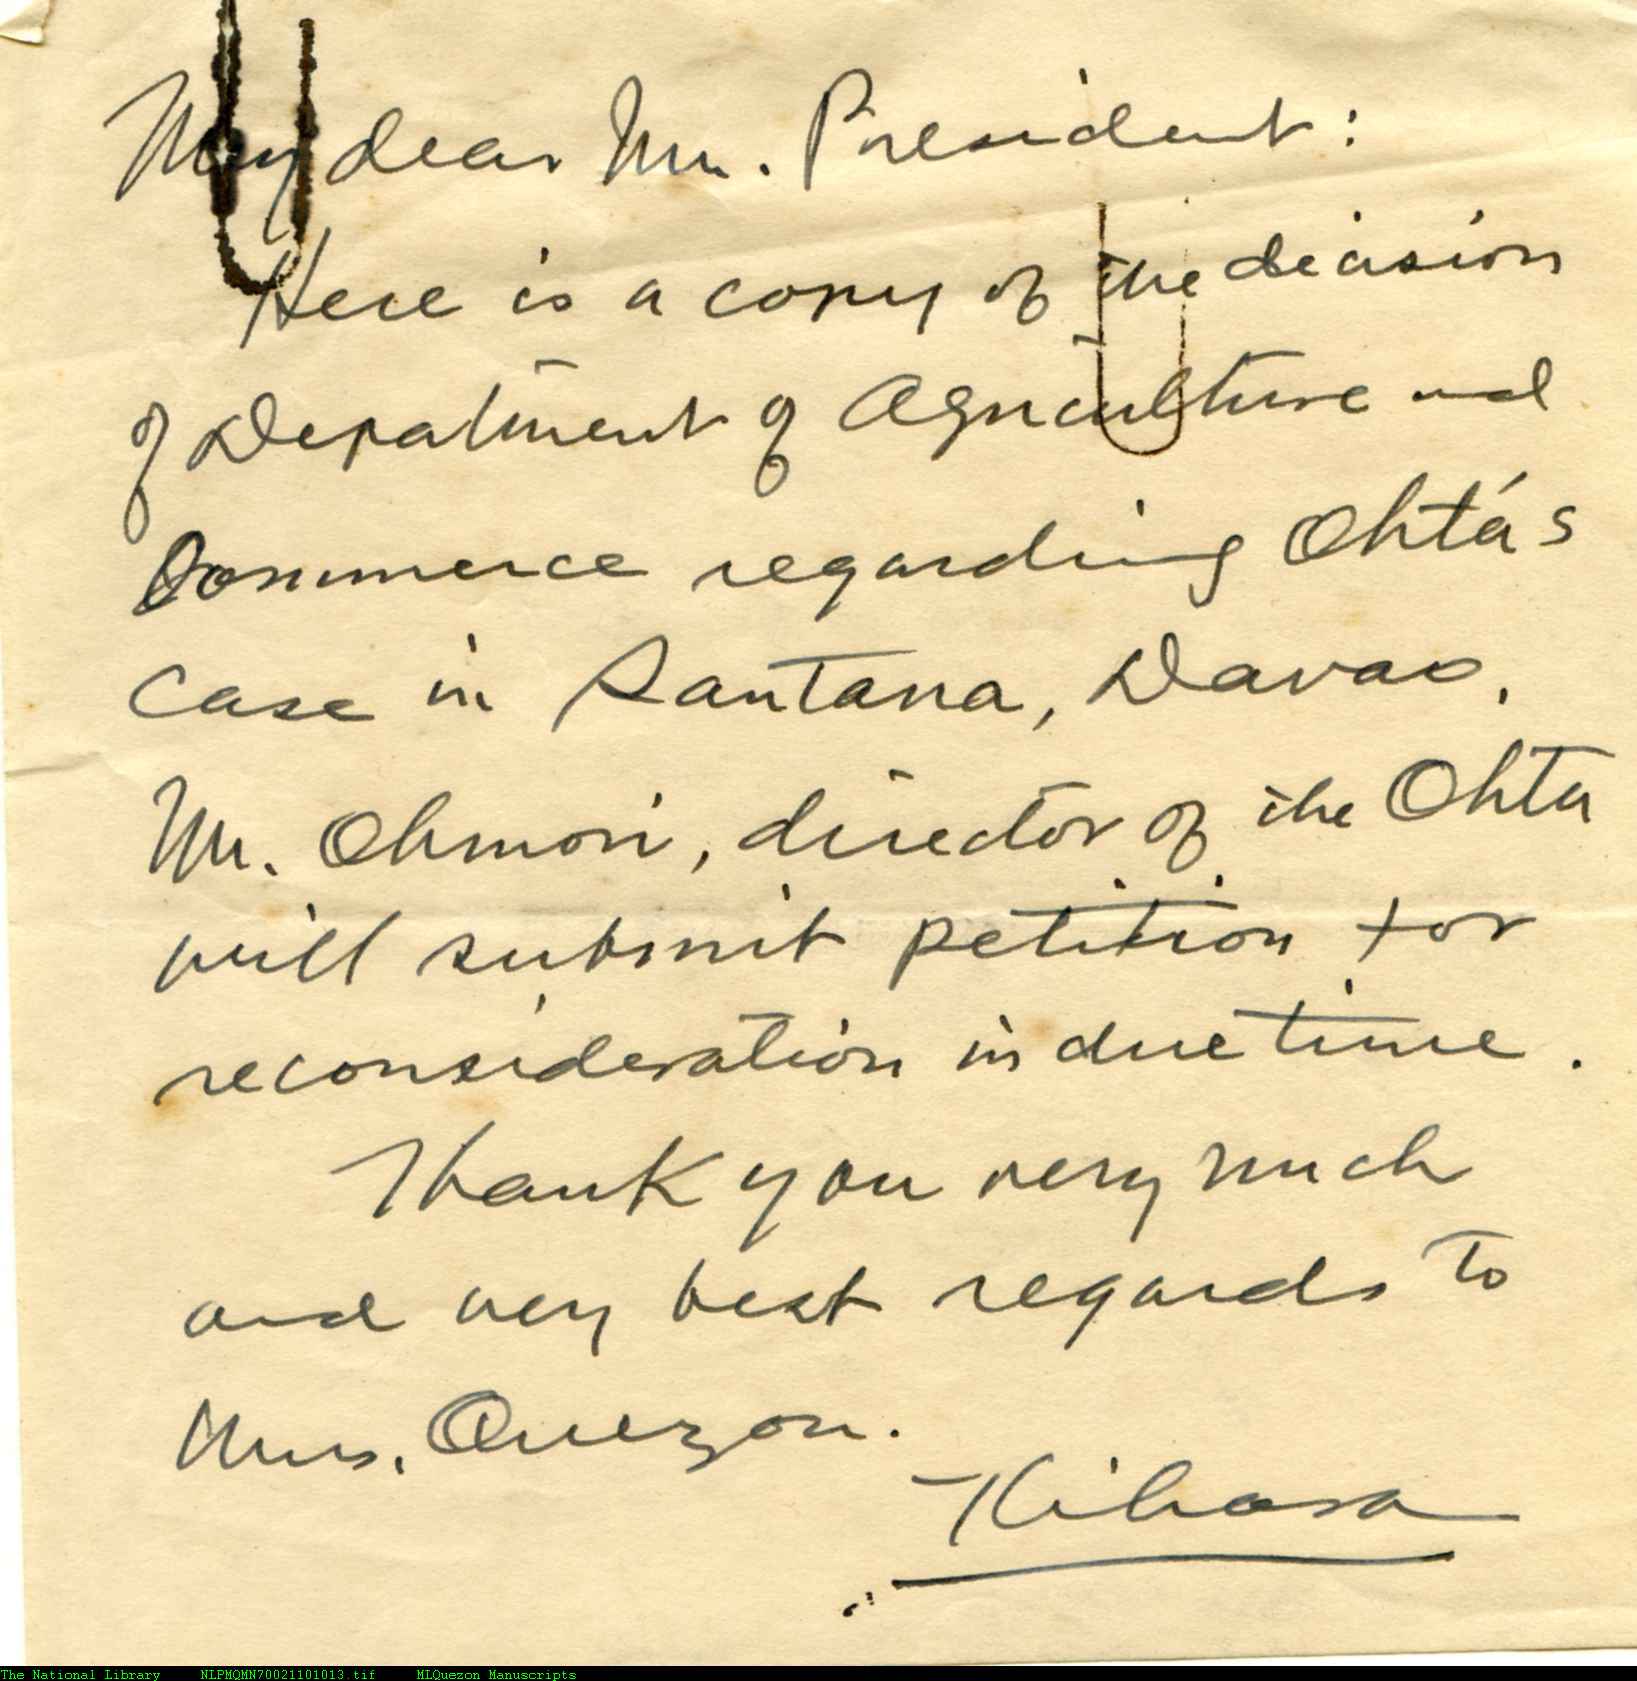 My dear Mr. President:
Here is a copy of the decision
of Department of Agriculture and
Commerce regarding Ohta's
case in Santana, Davao.
Mr. Ohmori, director of the Ohta
will submit petition for
reconsideration in due time.
Thank you very much
and very best regards to
Mrs. Quezon.
Kihara
The National Library NLPMQMN70021101013.tif MLQuezon Manuscripts